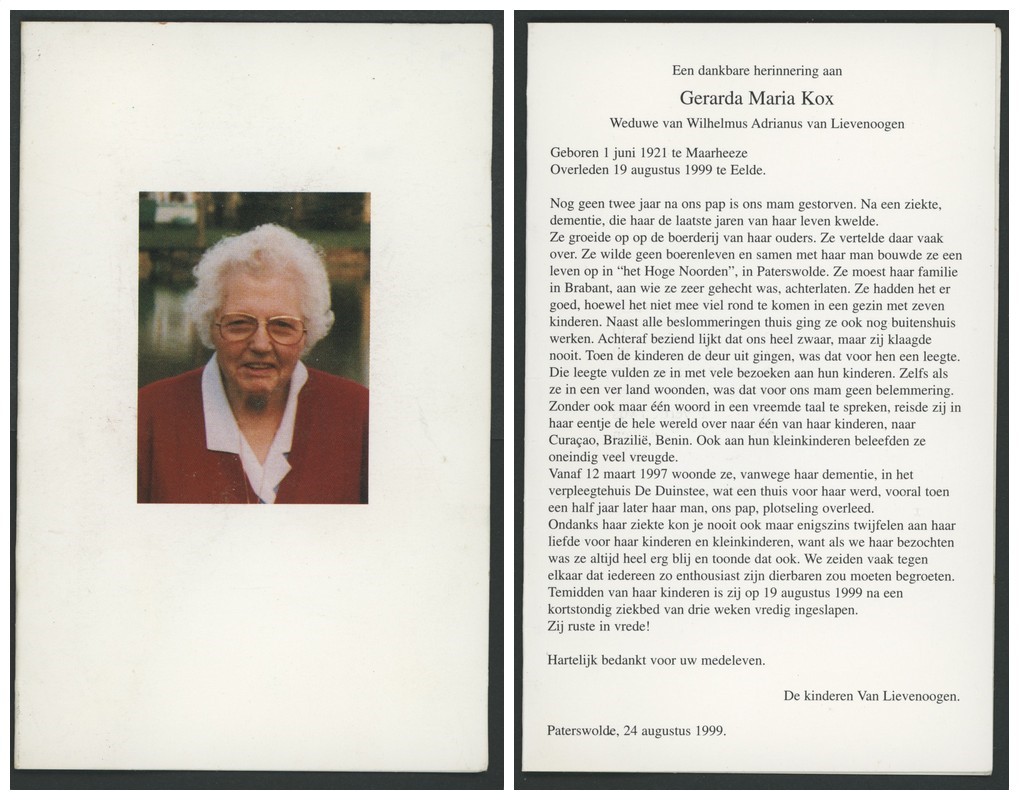 Een dankbare herinnering aan
Gerarda Maria Kox
Weduwe van Wilhelmus Adrianus van Lievenoogen
Geboren 1 juni 1921 te Maarheeze
Overleden 19 augustus 1999 te Eelde.
Nog geen twee jaar na ons pap is ons mam gestorven. Na een ziekte,
dementie, die haar de laatste jaren van haar leven kwelde.
Ze groeide op op de boerderij van haar ouders. Ze vertelde daar vaak
over. Ze wilde geen boerenleven en samen met haar man bouwde ze een
leven op in “het Hoge Noorden”, in Paterswolde. Ze moest haar familie
in Brabant, aan wie ze zeer gehecht was, achterlaten. Ze hadden het er
goed, hoewel het niet mee viel rond te komen in een gezin met zeven
kinderen. Naast alle beslommeringen thuis ging ze ook nog buitenshuis
werken. Achteraf beziend lijkt dat ons heel zwaar, maar zij klaagde
nooit. Toen de kinderen de deur uit gingen, was dat voor hen een leegte.
Die leegte vulden ze in met vele bezoeken aan hun kinderen. Zelfs als
ze in een ver land woonden, was dat voor ons mam geen belemmering.
Zonder ook maar één woord in een vreemde taal te spreken, reisde zij in
haar eentje de hele wereld over naar één van haar kinderen, naar
Curaçao, Brazilië, Benin. Ook aan hun kleinkinderen beleefden ze
oneindig veel vreugde.
Vanaf 12 maart 1997 woonde ze, vanwege haar dementie, in het
verpleegtehuis De Duinstee, wat een thuis voor haar werd, vooral toen
een half jaar later haar man, ons pap, plotseling overleed.
Ondanks haar ziekte kon je nooit ook maar enigszins twijfelen aan haar
liefde voor haar kinderen en kleinkinderen, want als we haar bezochten
was ze altijd heel erg blij en toonde dat ook. We zeiden vaak tegen
elkaar dat iedereen zo enthousiast zijn dierbaren zou moeten begroeten.
Temidden van haar kinderen is zij op 19 augustus 1999 na een
kortstondig ziekbed van drie weken vredig ingeslapen.
Zij ruste in vrede!
Hartelijk bedankt voor uw medeleven.
De kinderen Van Lievenoogen.
Paterswolde, 24 augustus 1999.